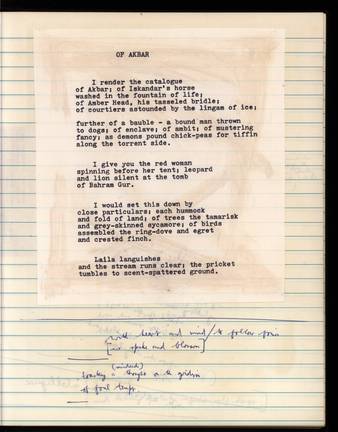 OF AKBAR
I render the catalogue
of Akbar; of Iskandar's horse
washed in the fountain of life;
of Amber Head, his tasseled bridle;
of courtiers astounded by the lingam of ice;
further of a bauble - a bound man thrown
to dogs; of enclave; of ambit; of mustering
fancy; as demons pound chick-peas for tiffin
along the torrent side.
I give you the red woman
spinning before her tent; leopard
and lion silent at the tomb
of Bahram Gur.
I would set this down by
close particulars; each hummock
and fold of land; of trees the tamarisk
and grey-skinned sycamore; of birds
assembled the ring-dove and egret
and crested finch.
Laila languishes
and the stream runs clear; the pricket
tumbles to scent-spattered ground.
with heart and mind / to follow from
and blossom]
thought on the
of foul